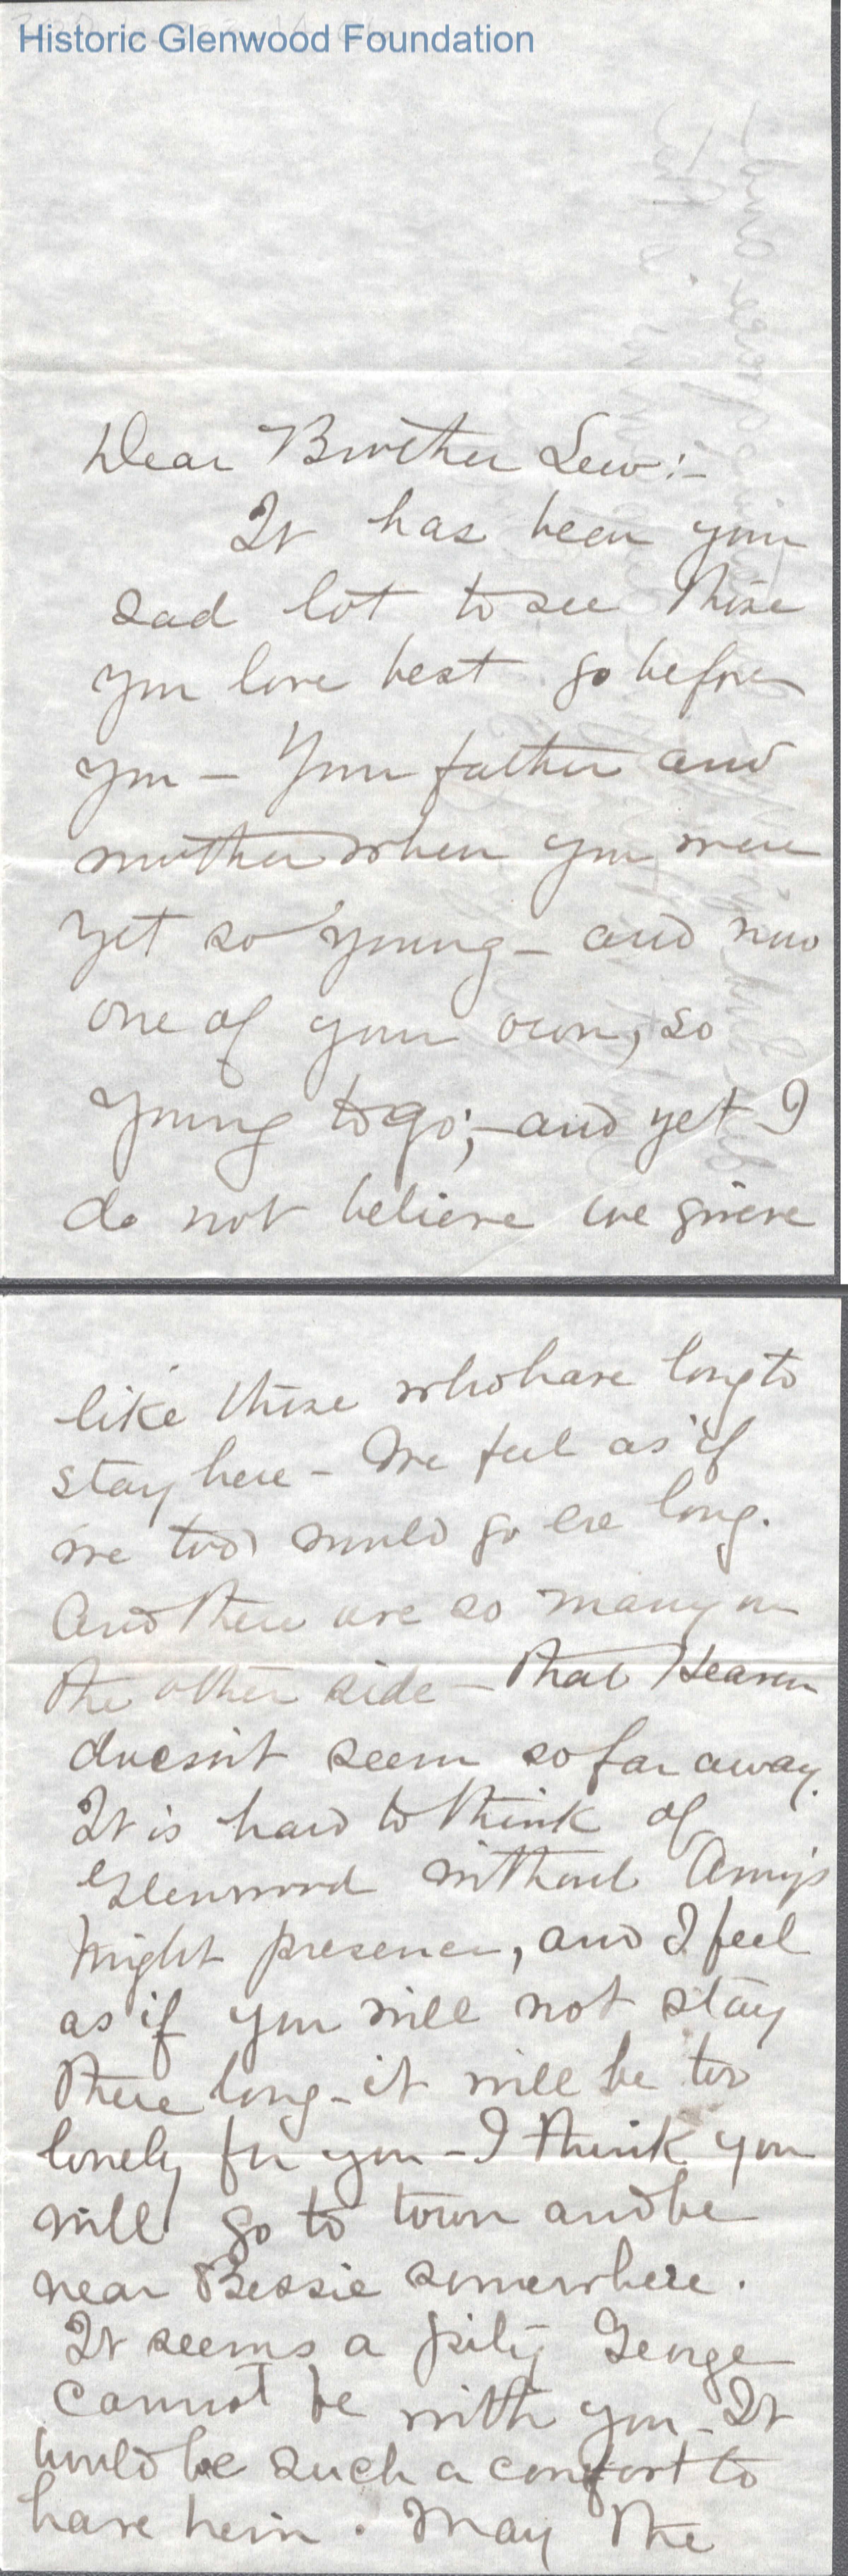 Historic Glenwood Foundation
Dear Brother Lew:-
It has been your
sad lot to see those
you love best go before
you - Your father and
mother when you were
yet so young - and now
one of your own, so
young to go; - and yet I
do not believe we grieve
like those who have long to
stay here - We feel as if
we too would go ere long.
And there are so many on
the other side - that Heaven
doesn't seem so far away.
It is hard to think of
Glenwood without Amy's
bright presence, and I feel
as if you will not stay
there long - it will be too
lonely for you - I think you
will go to town and be
near Bessie somewhere.
It seems a pity George
cannot be with you - It
would be such a comfort to
have him. May the